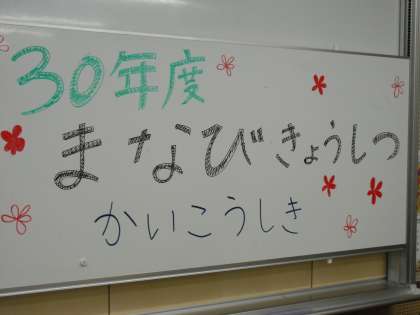 30年度
まなびきょうしつ
かいこうしき